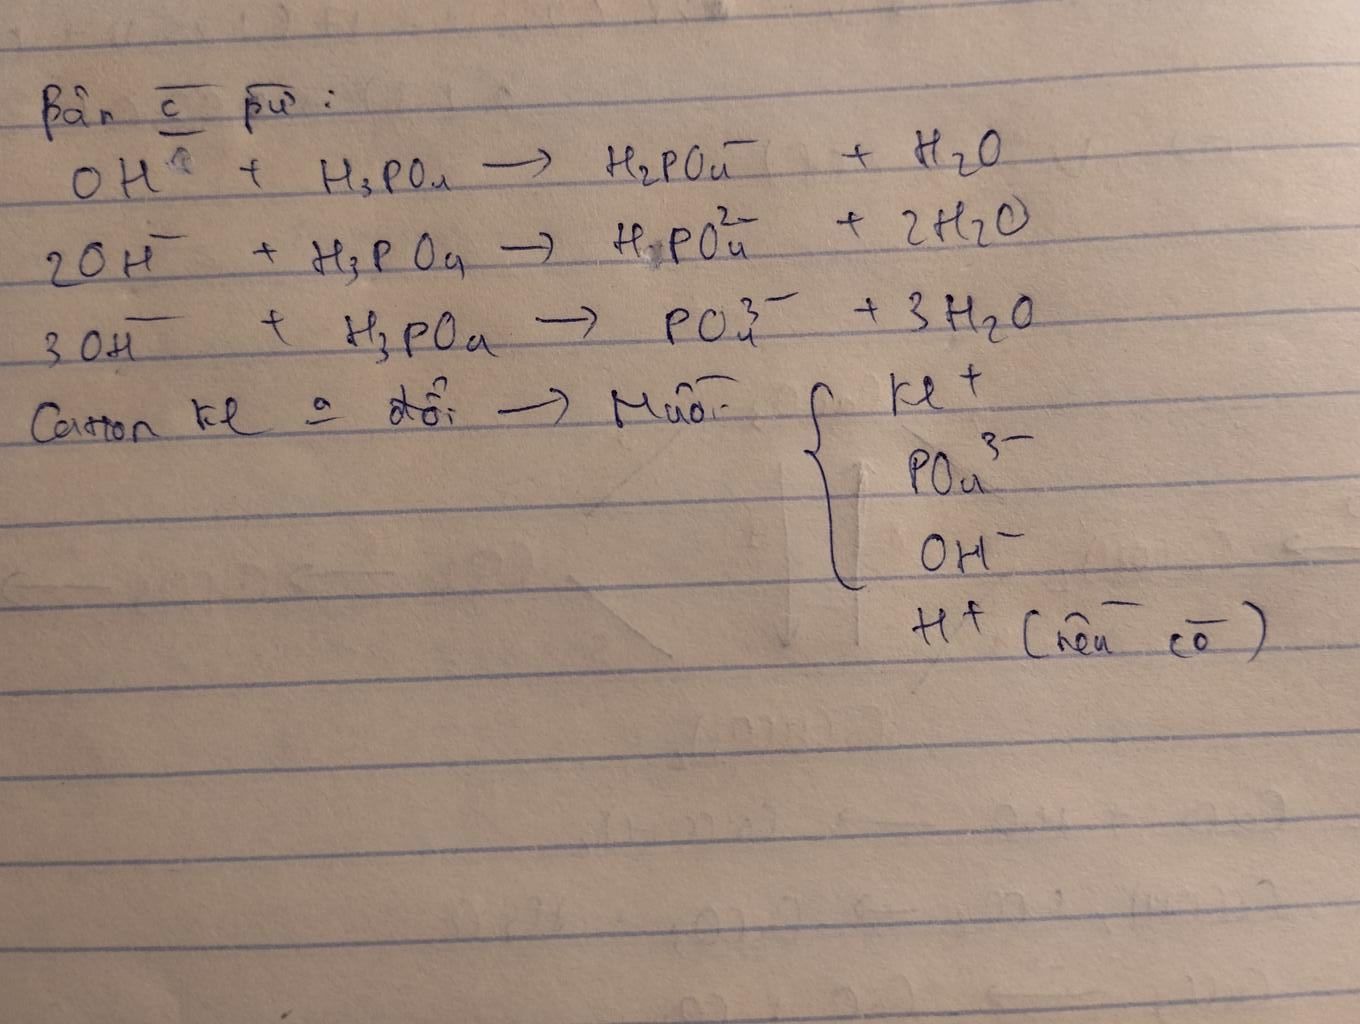 Bản c pứ:
OH⁻ + H₃PO₄ → H₂PO₄⁻ + H₂O
2OH⁻ + H₃PO₄ → HPO₄²⁻ + 2H₂O
3OH⁻ + H₃PO₄ → PO₄³⁻ + 3H₂O
Cation kl đổi → Muối { kl⁺
PO₄³⁻
OH⁻
H⁺ (nếu có)